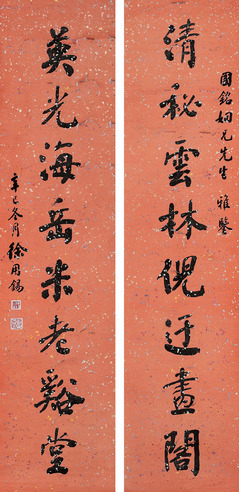 國銘姻兄先生 雅鑒
清秘雲林倪迂畫閣
英光海岳米老谿堂
辛巳冬月 徐用錫